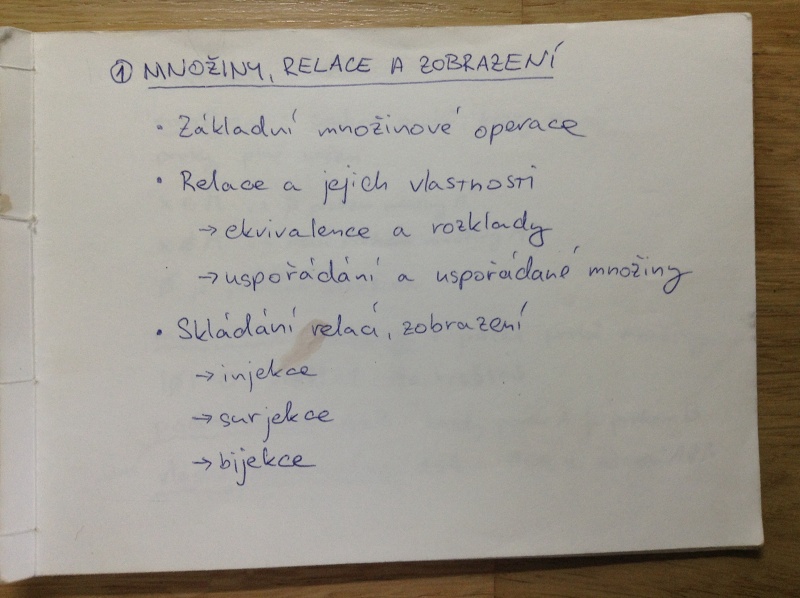 ① MNOŽINY, RELACE A ZOBRAZENÍ
• Základní množinové operace
• Relace a jejich vlastnosti
→ ekvivalence a rozklady
→ uspořádání a uspořádané množiny
• Skládání relací, zobrazení
→ injekce
→ surjekce
→ bijekce